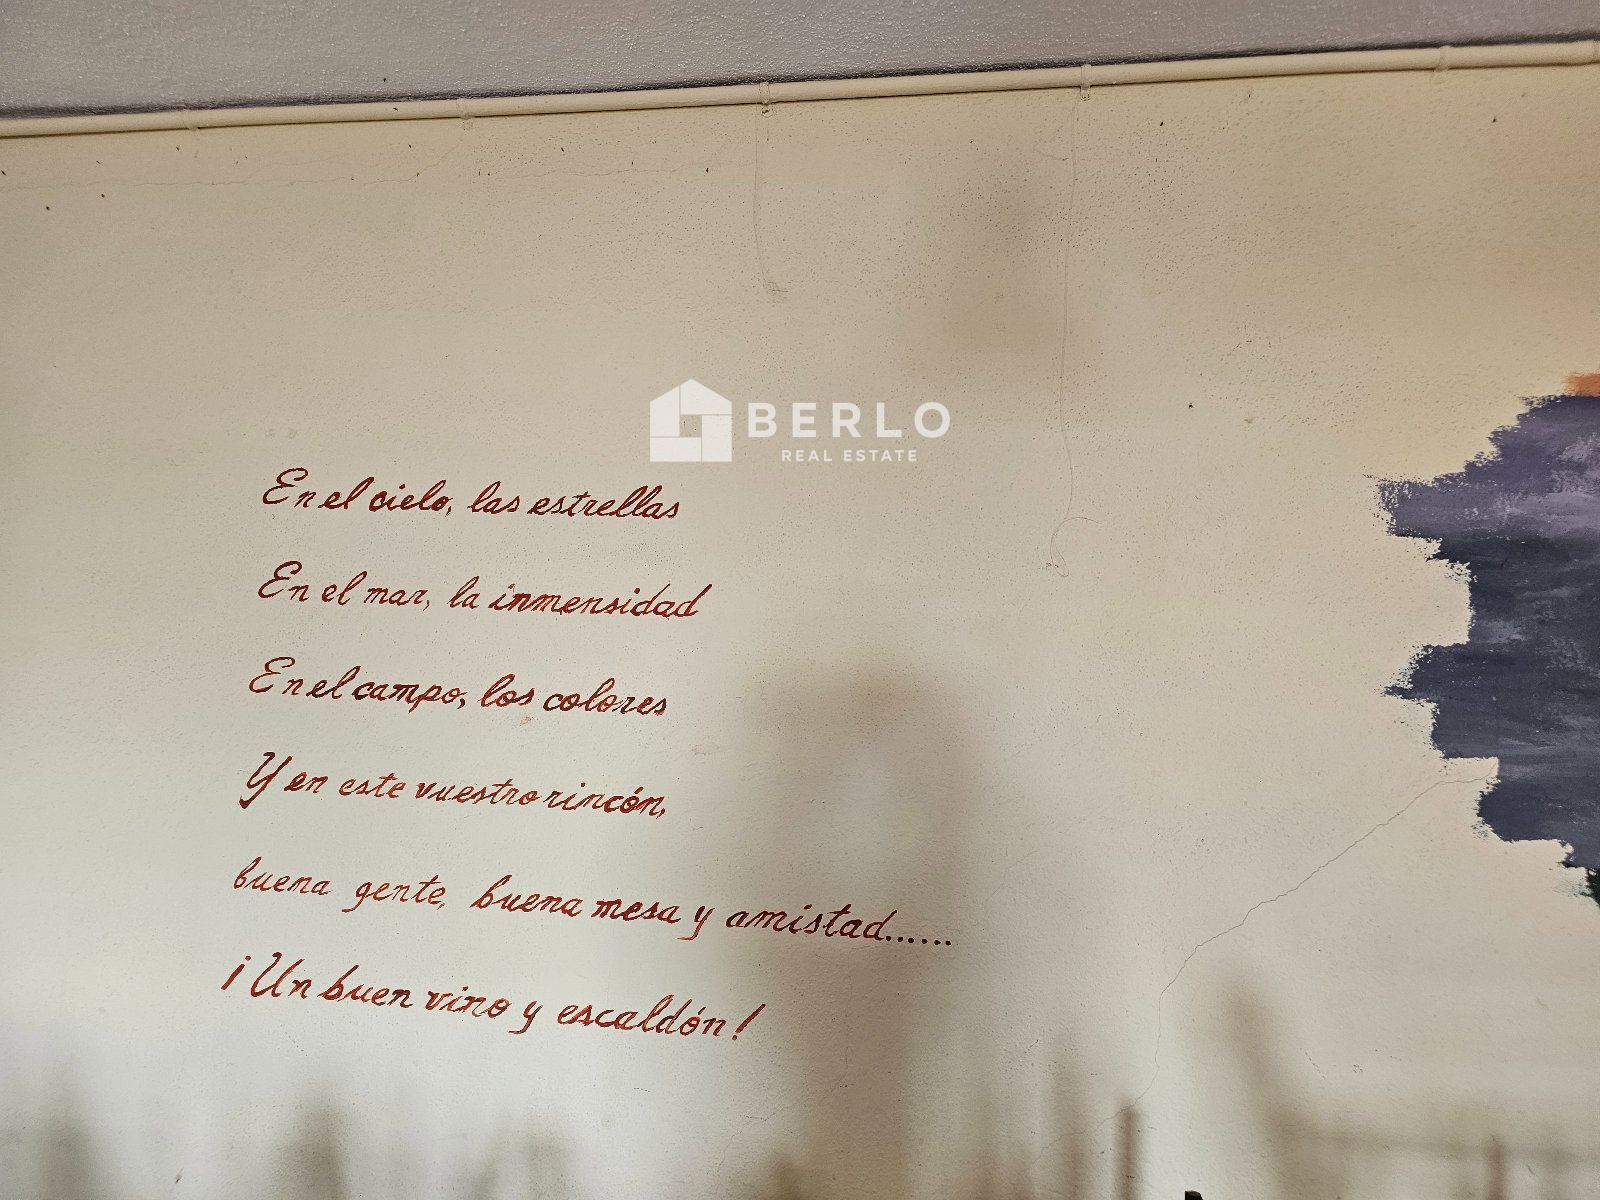 BERLO
REAL ESTATE
En el cielo, las estrellas
En el mar, la inmensidad
En el campo, los colores
Y en este vuestro rincón,
buena gente, buena mesa y amistad......
¡Un buen vino y escaldón!